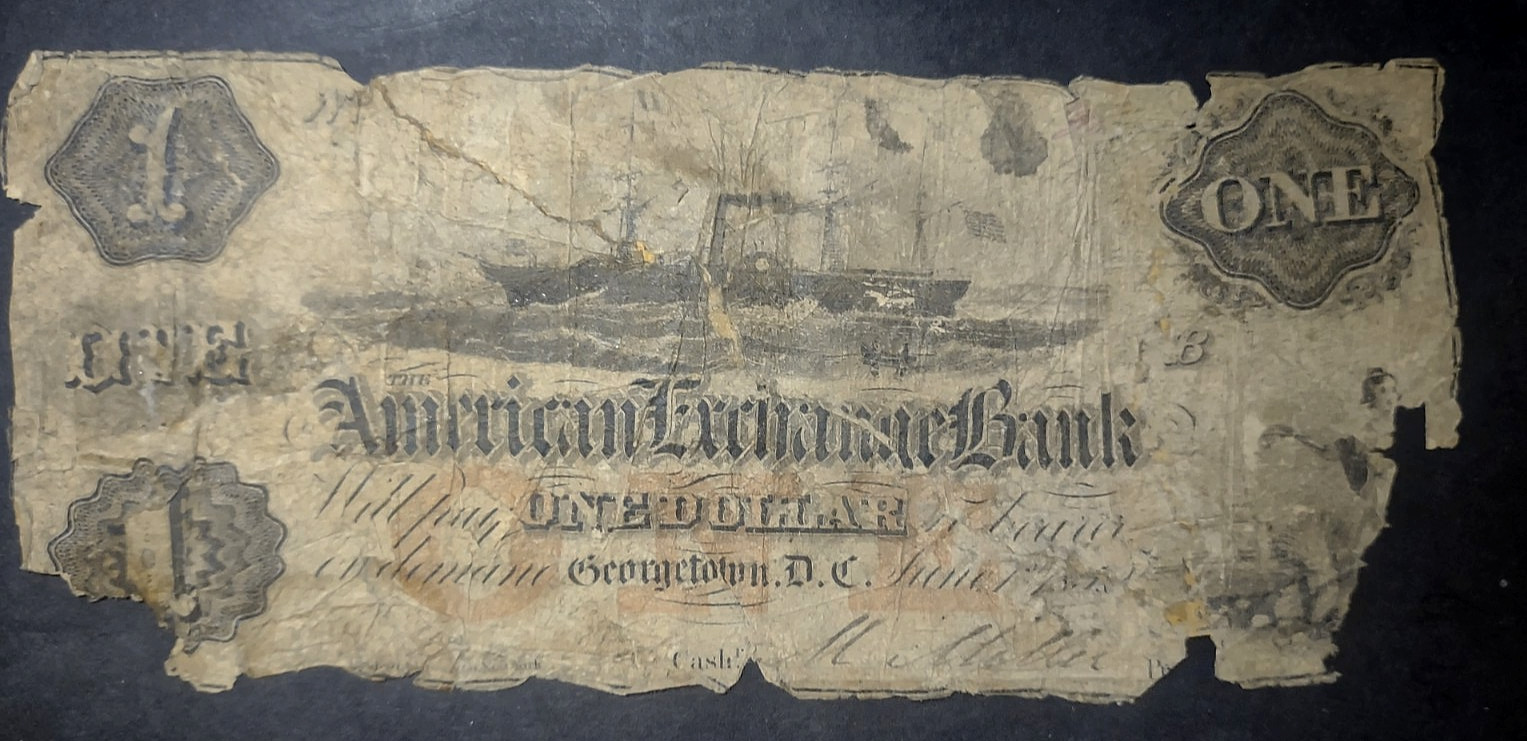 1
ONE
ONE
B
THE
American Exchange Bank
Will pay ONE DOLLAR to bearer
on demand Georgetown. D. C. June 1st
ONE
1
Cash.r